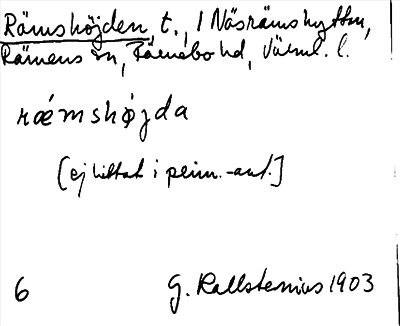 Rämshöjden, t., i Näsrämshyttan,
Rämens sn, Färnebo hd, Värml. l.
ræ̀mshø̀jda
[ej hittat i prim.-ant.]
6 G. Kallstenius 1903